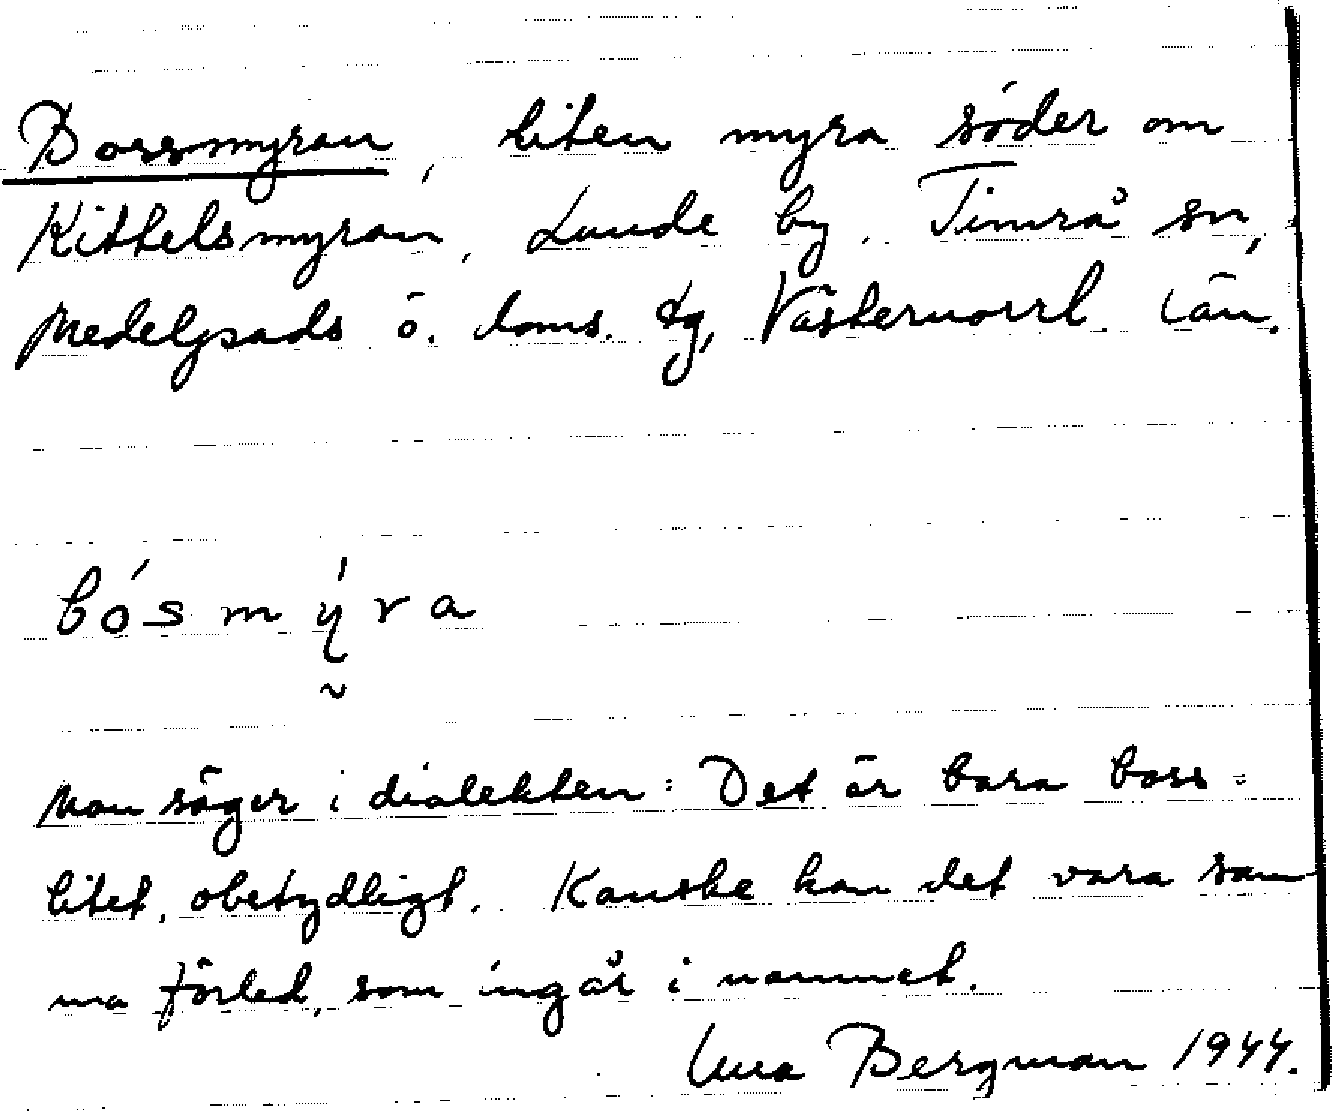 Bossmyran, liten myra söder om
Kittelsmyran, Lunde by, Timrå sn,
Medelpads ö. doms. tg, Västernorrl. län.
bósmýra
Man säger i dialekten: Det är bara boss =
litet, obetydligt. Kanske kan det vara sam
ma förled, som ingår i namnet.
Bergman 1944.